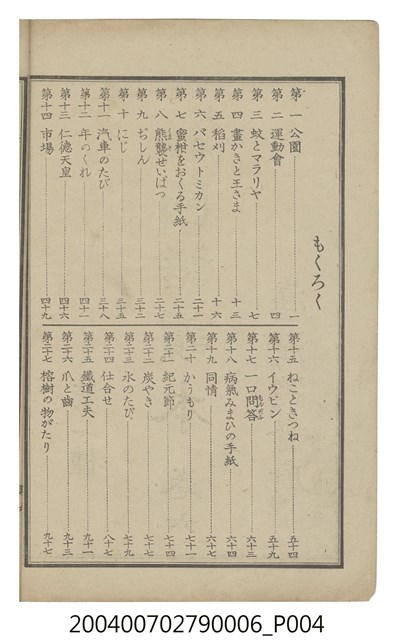 もくろく
第一 公園 一
第二 運動會 四
第三 蚊とマラリヤ 七
第四 畫かきと王さま 十三
第五 稻刈 十六
第六 バセウトミカン 二十一
第七 蜜柑をおくる手紙 二十五
第八 熊襲せいばつ 二十七
第九 ぢしん 三十二
第十 にじ 三十五
第十一 汽車のたび 三十八
第十二 年のくれ 四十一
第十三 仁德天皇 四十六
第十四 市場 四十九
第十五 ねこときつね 五十四
第十六 イウビン 五十九
第十七 一口問答 六十三
第十八 病氣みまひの手紙 六十四
第十九 同情 六十七
第二十 かうもり 七十一
第二十一 紀元節 七十四
第二十二 炭やき 七十七
第二十三 水のたび 七十九
第二十四 仕合せ 八十七
第二十五 鐵道工夫 九十一
第二十六 爪と齒 九十三
第二十七 榕樹の物がたり 九十七
200400702790006_P004